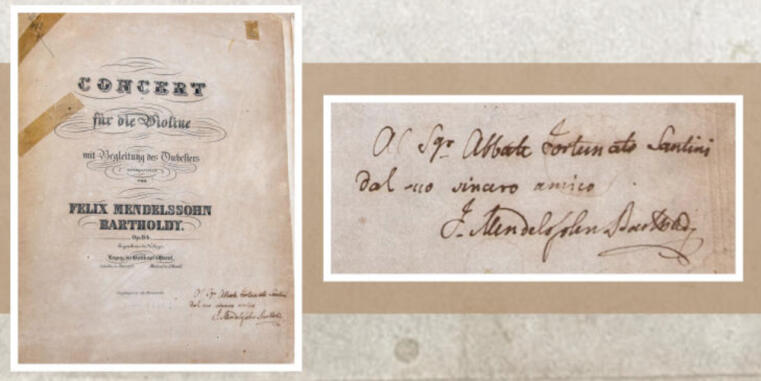 CONCERT
für die Violine
mit Begleitung des Orchesters
componirt
von
FELIX MENDELSSOHN
BARTHOLDY.
Op. 64.
Leipzig, bei Breitkopf & Härtel.
Al Sgr Abbate Fortunato Santini
dal suo sincero amico
F. Mendelssohn Bartholdy
Al Sgr Abbate Fortunato Santini
dal suo sincero amico
F. Mendelssohn Bartholdy